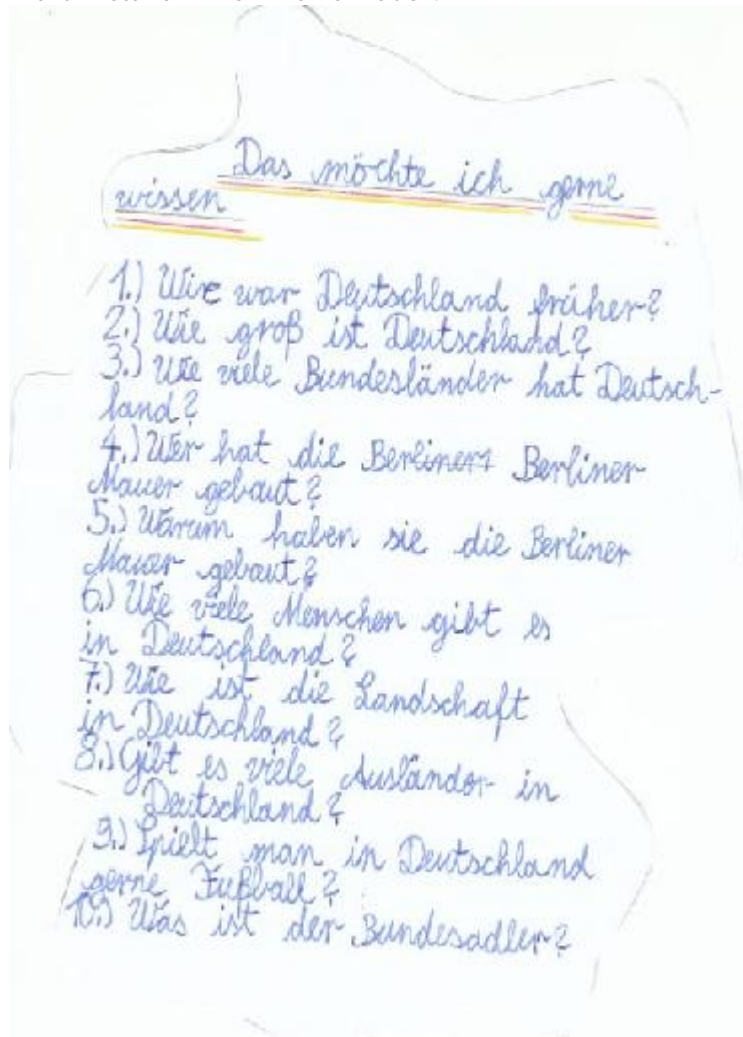 Das möchte ich gerne
wissen
1.) Wie war Deutschland früher?
2.) Wie groß ist Deutschland?
3.) Wie viele Bundesländer hat Deutsch-
land?
4.) Wer hat die Berliners Berliner
Mauer gebaut?
5.) Warum haben sie die Berliner
Mauer gebaut?
6.) Wie viele Menschen gibt es
in Deutschland?
7.) Wie ist die Landschaft
in Deutschland?
8.) Gibt es viele Ausländer in
Deutschland?
9.) Spielt man in Deutschland
gerne Fußball?
10.) Was ist der Bundesadler?